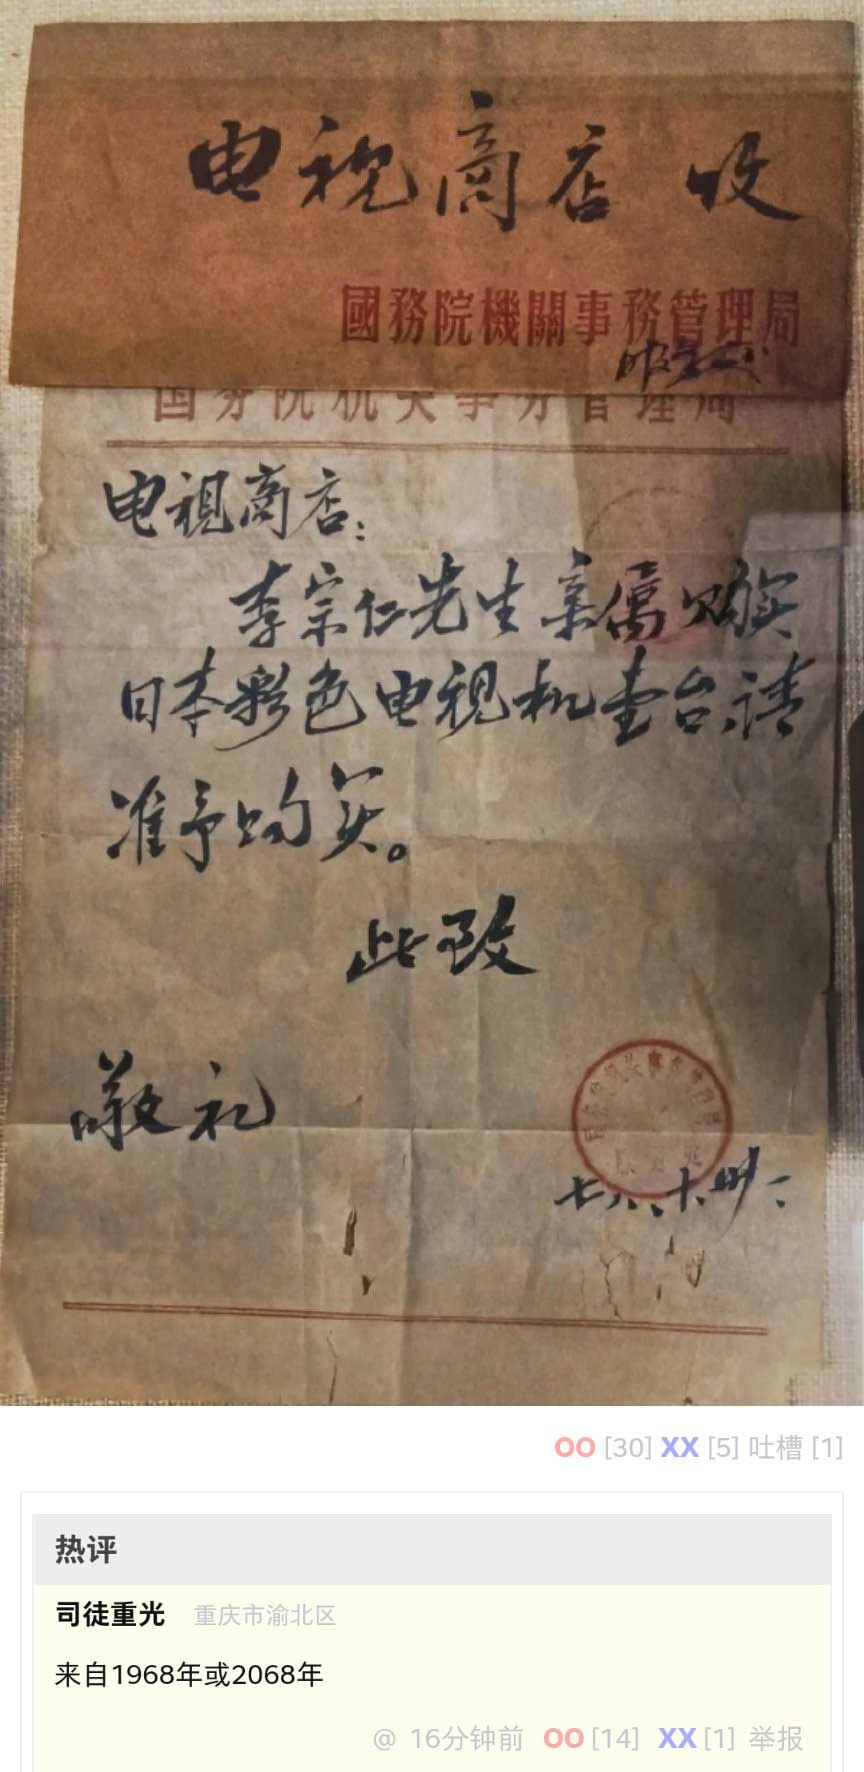 电视商店 收
國務院機關事務管理局
国务院机关事务管理局
电视商店：
李宗仁先生亲属购买
日本彩色电视机壹台，请
准予购买。
此致
敬礼
OO [30] XX [5] 吐槽 [1]
热评
司徒重光 重庆市渝北区
来自1968年或2068年
@ 16分钟前 OO [14] XX [1] 举报